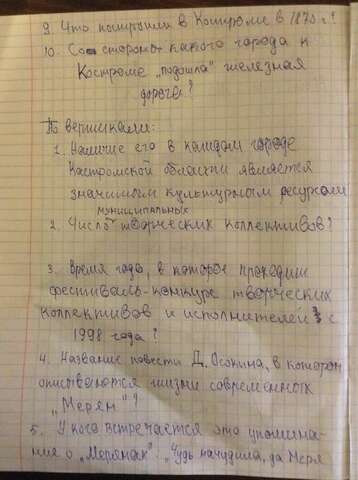 9. Что построили в Костроме в 1870 г.?
10. Со стороны какого города к
Костроме „подошла" железная
дорога?
По вертикали:
1. Наличие его в каждом городе
Костромской области является
значимым культурным ресурсом
муниципальных
2. Число творческих коллективов?
3. Время года, в которое проходит
фестиваль-конкурс творческих
коллективов и исполнителей с
1998 года?
4. Название повести Д. Осокина, в котором
описываются жизни современных
„Мерян"?
5. У кого встречается это упомина-
ние о „Мерянах": „Чудь начудила, да Меря